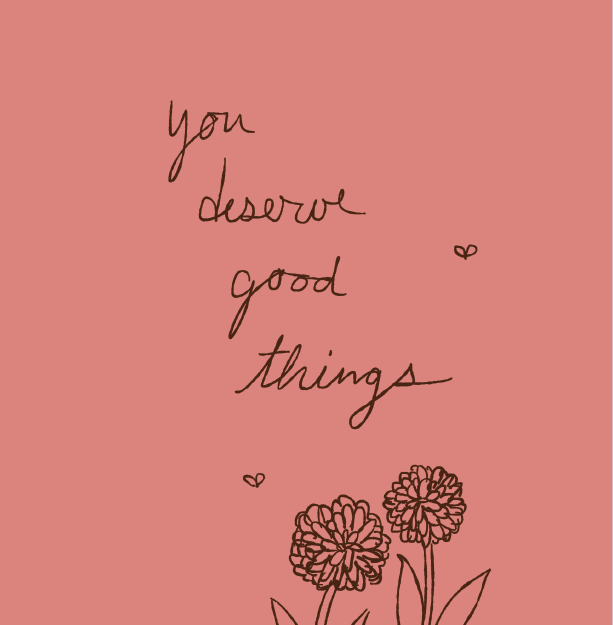 you
deserve
good
things